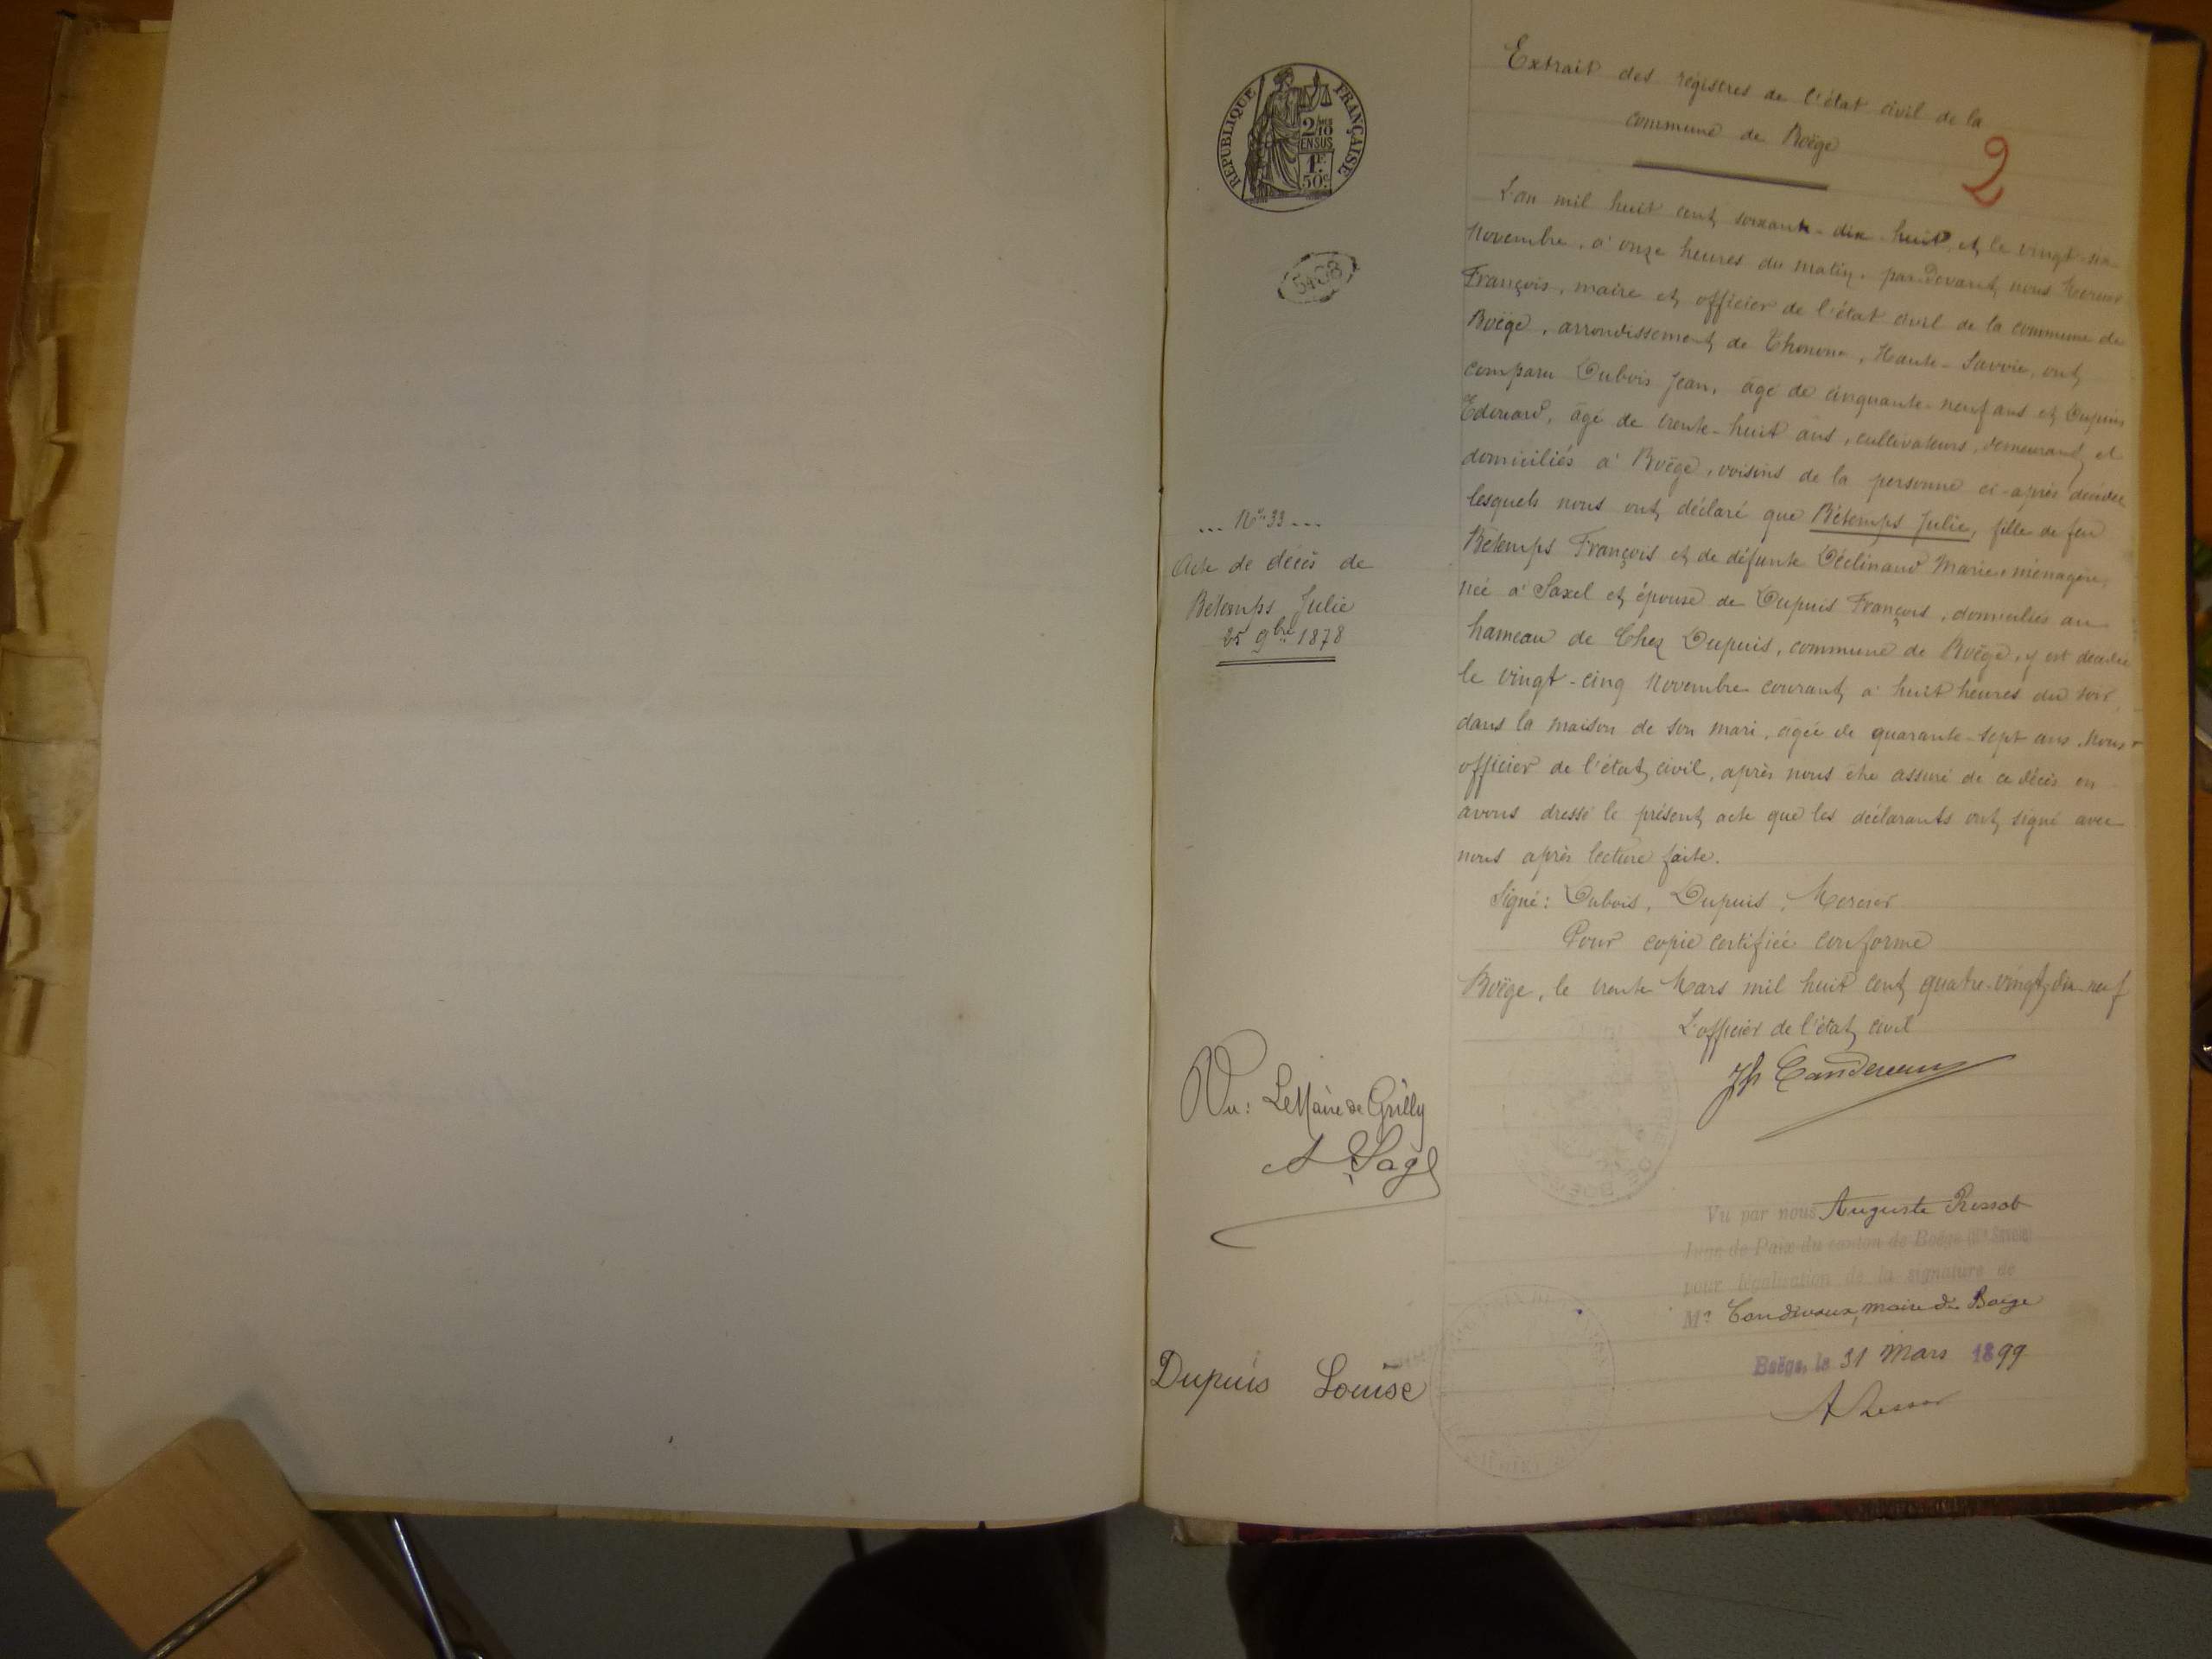 RÉPUBLIQUE FRANÇAISE
2/10
EN SUS
1F
50c
... No 33 ...
Acte de décès de
Bétemps Julie
25 9bre 1878
Vu: Le Maire de Grilly
Dupuis Louise
Extrait des registres de l'état civil de la
commune de Boëge
2
L'an mil huit cent soixante-dix-huit et le vingt-six
novembre, à onze heures du matin, par-devant nous Mercier
François, maire et officier de l'état civil de la commune de
Boëge, arrondissement de Thonon, Haute-Savoie, ont
comparu Dubois Jean, âgé de cinquante-neuf ans et Dupuis
Edouard, âgé de trente-huit ans, cultivateurs, demeurant et
domiciliés à Boëge, voisins de la personne ci-après décédée
lesquels nous ont déclaré que Bétemps Julie, fille de feu
Bétemps François et de défunte Déclinand Marie, ménagère,
née à Saxel et épouse de Dupuis François, domiciliés au
hameau de Chez Dupuis, commune de Boëge, y est décédée
le vingt-cinq novembre courant à huit heures du soir,
dans la maison de son mari, âgée de quarante-sept ans. Nous
officier de l'état civil, après nous être assuré de ce décès en
avons dressé le présent acte que les déclarants ont signé avec
nous après lecture faite.
Signé: Dubois, Dupuis, Mercier
Pour copie certifiée conforme
Boëge, le trente Mars mil huit cent quatre-vingt-dix-neuf
L'officier de l'état civil
Vu par nous Auguste
Juge de Paix du canton de Boëge (Hte Savoie)
pour légalisation de la signature de
Mr maire de Boëge
Boëge, le 31 Mars 1899